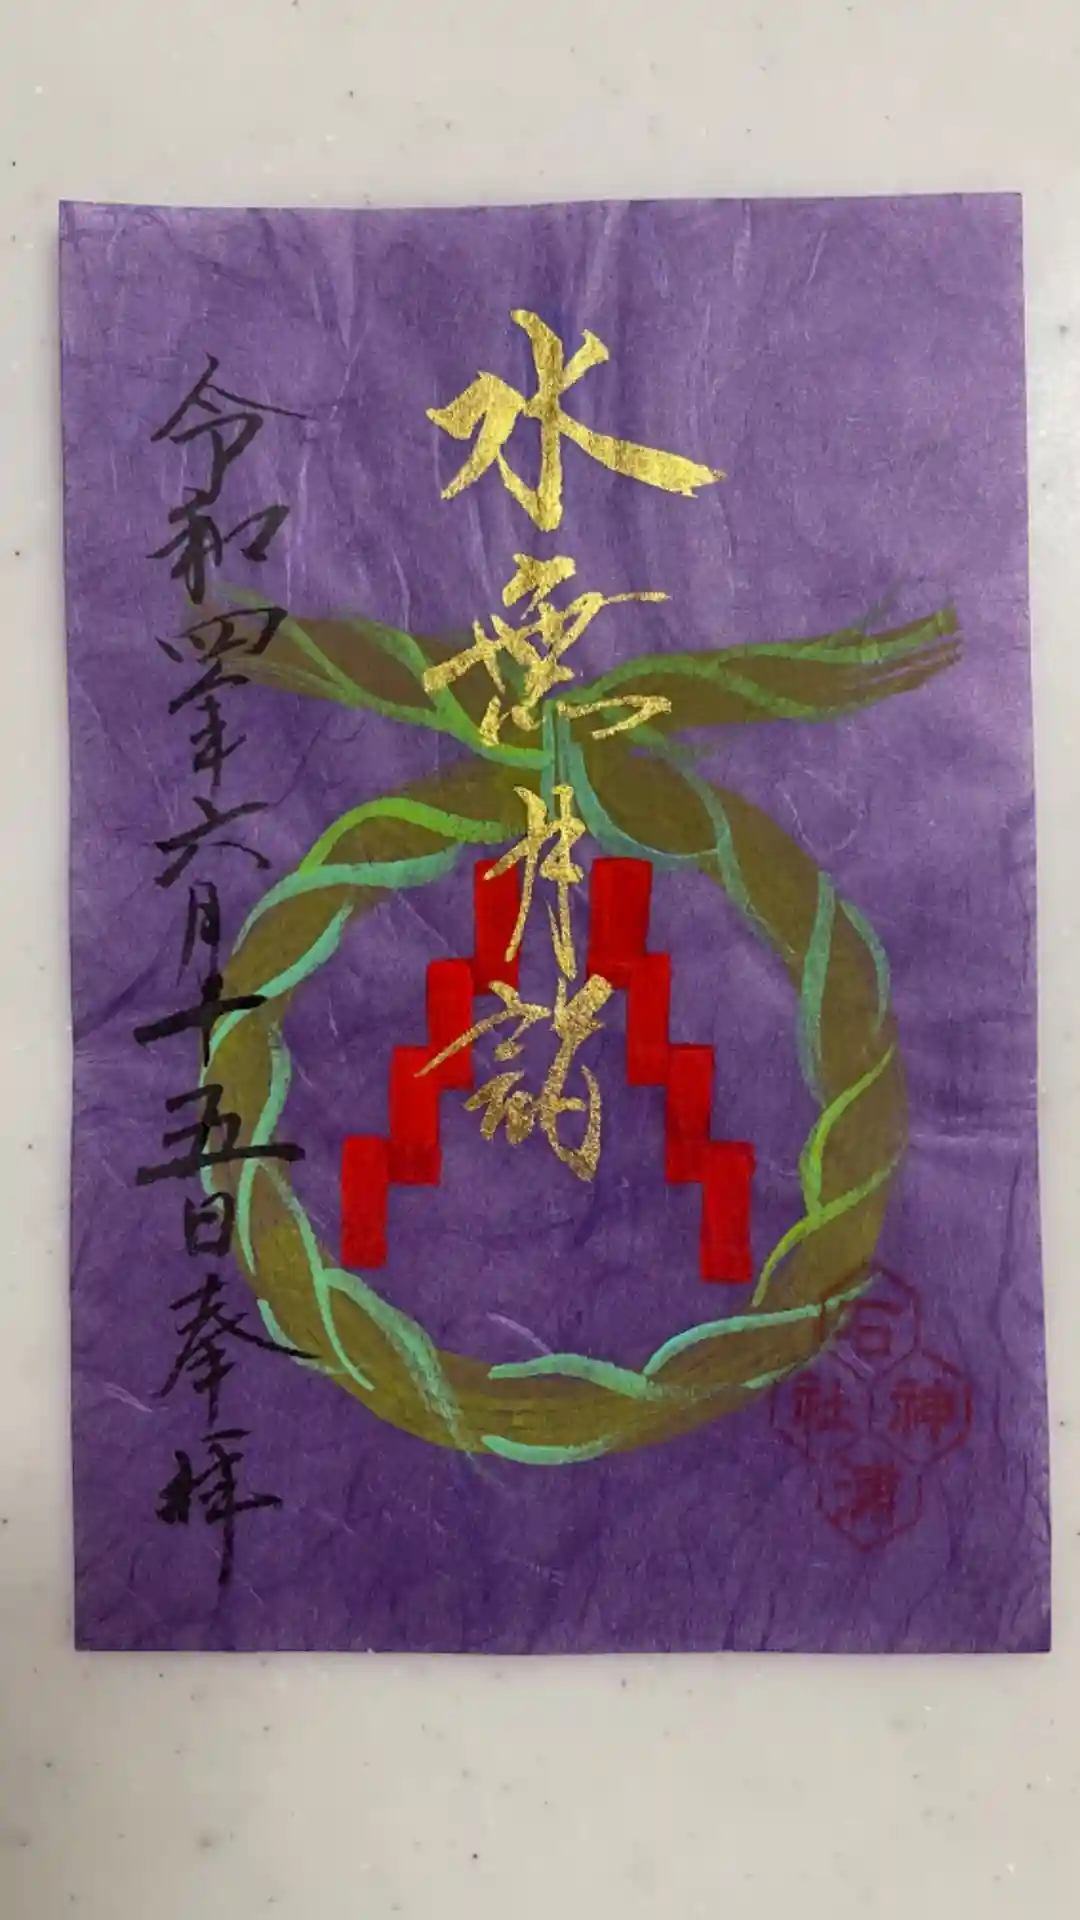 水無月詣
令和四年六月十五日奉拝
石浦神社